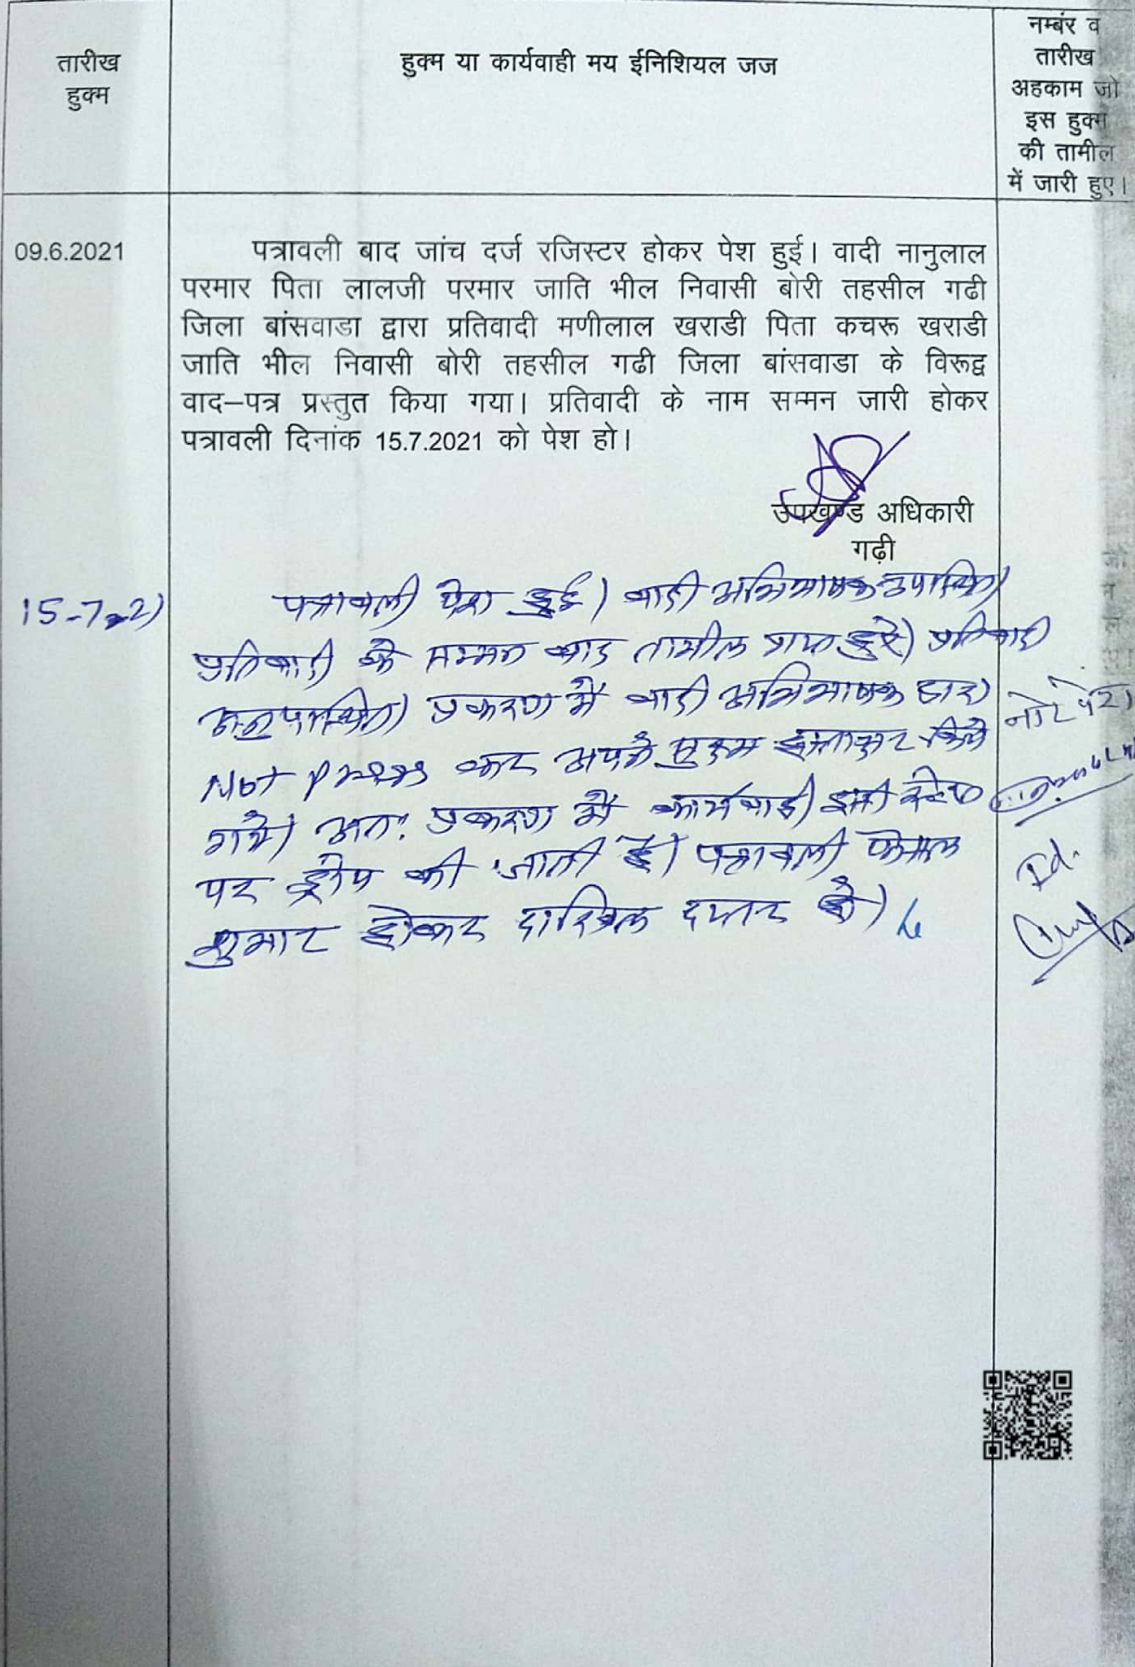 तारीख
हुक्म
हुक्म या कार्यवाही मय ईनिशियल जज
नम्बंर व
तारीख
अहकाम जो
इस हुक्म
की तामील
में जारी हुए।
09.6.2021
पत्रावली बाद जांच दर्ज रजिस्टर होकर पेश हुई। वादी नानुलाल
परमार पिता लालजी परमार जाति भील निवासी बोरी तहसील गढी
जिला बांसवाडा द्वारा प्रतिवादी मणीलाल खराडी पिता कचरू खराडी
जाति भील निवासी बोरी तहसील गढी जिला बांसवाडा के विरूद्व
वाद–पत्र प्रस्तुत किया गया। प्रतिवादी के नाम सम्मन जारी होकर
पत्रावली दिनांक 15.7.2021 को पेश हो।
उपखण्ड अधिकारी
गढ़ी
15-7-21
पत्रावली पेश हुई। वादी अभिभाषक उपस्थित।
प्रतिवादी के सम्मन बाद तामील प्राप्त हुऐ। प्रतिवादी
अनुपस्थित। प्रकरण में वादी अभिभाषक द्वारा
Not press कर अपने हस्ताक्षर किये
गये। अतः प्रकरण में कार्यवाही इसी स्टेज
पर ड्रोप की जाती है। पत्रावली फैसल
शुमार होकर दाखिल दफ्तर हो।
नोट प्रेस